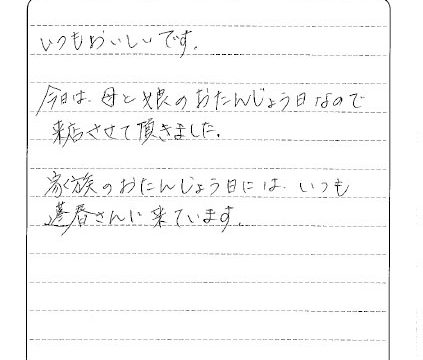 いつもおいしいです。
今日は、母と娘のおたんじょう日なので
来店させて頂きました。
家族のおたんじょう日には、いつも
蓬春さんに来ています。